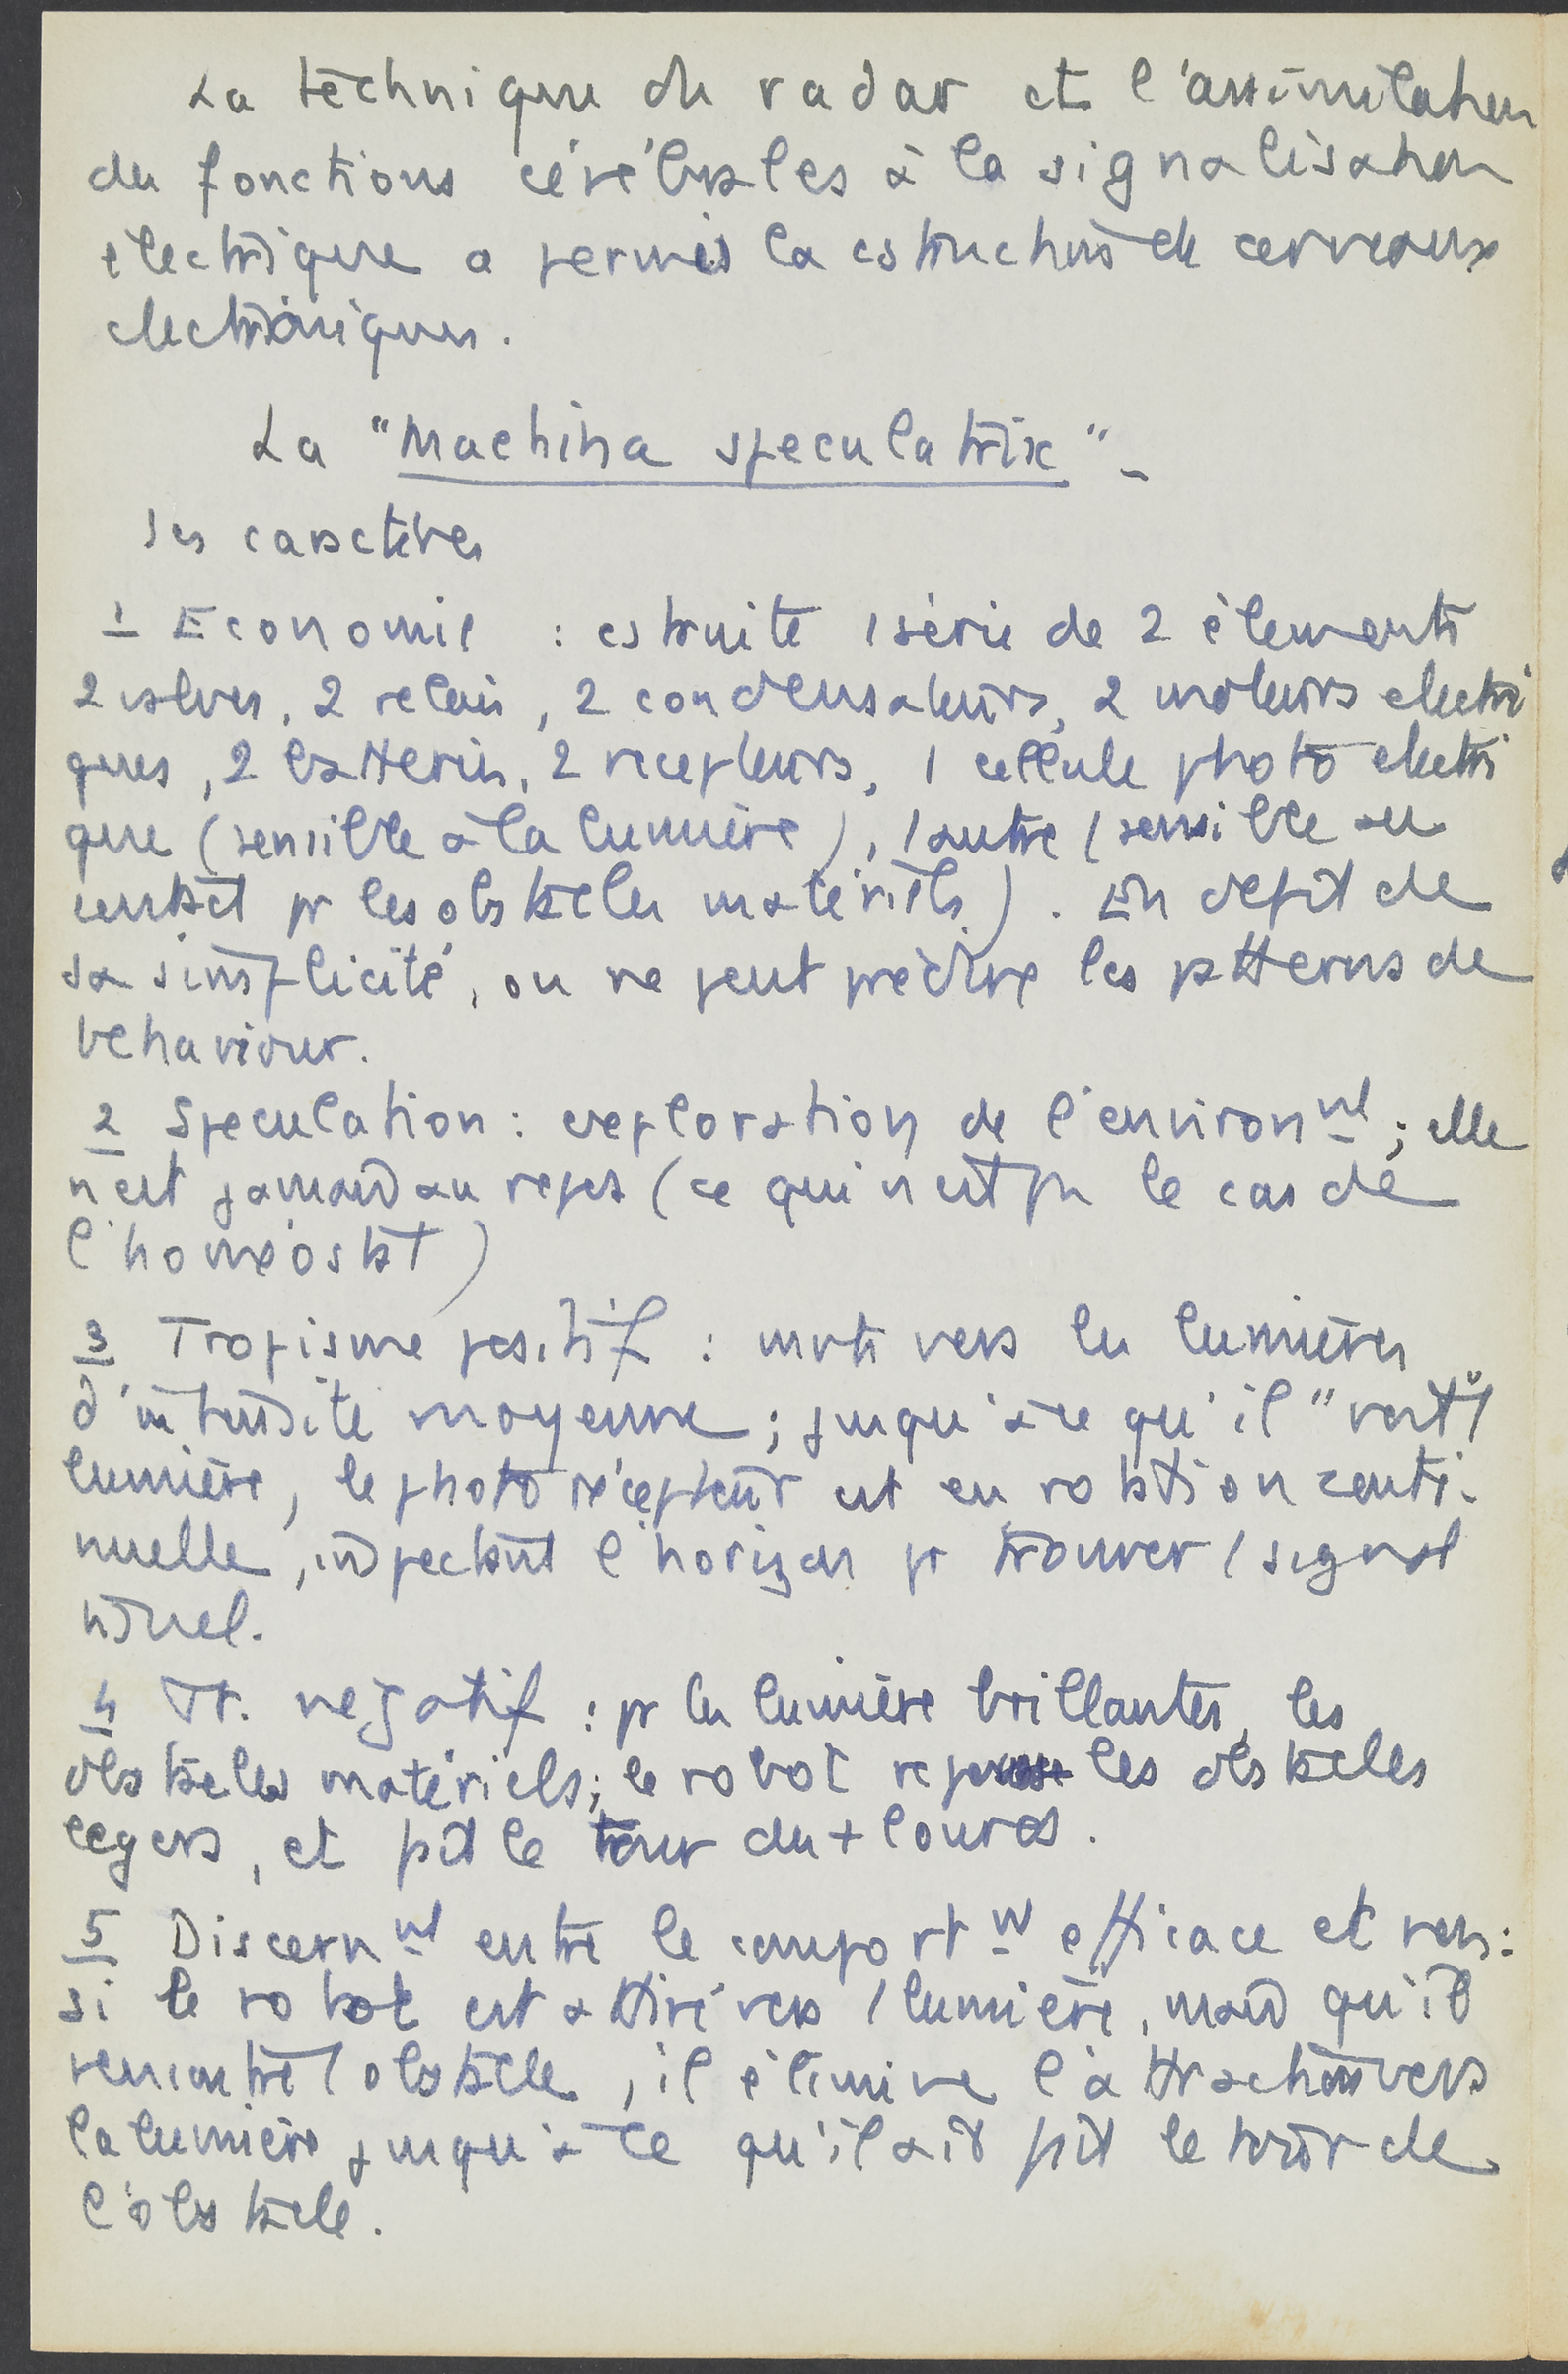 La technique du radar et l'assimilation
des fonctions cérébrales à la signalisation
électrique a permis la cstruction de cerveaux
électroniques.
La "Machina speculatrix" -
Ses caractères
1 Economie : cstruite 1 série de 2 élements
2 valves, 2 relais, 2 condensateurs, 2 moteurs électri
ques, 2 batteries, 2 recepteurs, 1 cellule photo électri
que (sensible à la lumière), 1 autre (sensible au
contact pr les obstacles matériels). En dépit de
sa simplicité, on ne peut prédire les patterns de
behaviour.
2 Speculation : exploration de l'environnt ; elle
n'est jamais au repos (ce qui n'est pas le cas de
l'homéostat)
3 Tropisme positif : mvts vers les lumières
d'intensité moyenne ; jusqu'à ce qu'il "voit" 1
lumière, le photo récepteur est en rotation conti-
nuelle, inspectant l'horizon pr trouver 1 signal
visuel.
4 Tr. négatif : pr les lumière brillantes, les
obstacles matériels ; le robot repousse les obstacles
légers, et fait le tour des + lourds.
5 Discernnt entre le comportnt efficace et vers :
si le robot est attiré vers 1 lumière, mais qu'il
rencontre 1 obstacle, il élimine l'attraction vers
la lumière jusqu'à ce qu'il ait fait le tour de
l'obstacle.